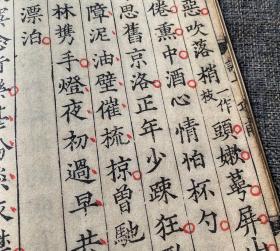 惡吹落梢一作枝頭嫩萼屏山
倦熏中酒心情怕杯勺
思舊京洛正年少疎狂
障泥油壁催梳掠曾馳
林携手燈夜初過早共
漂泊